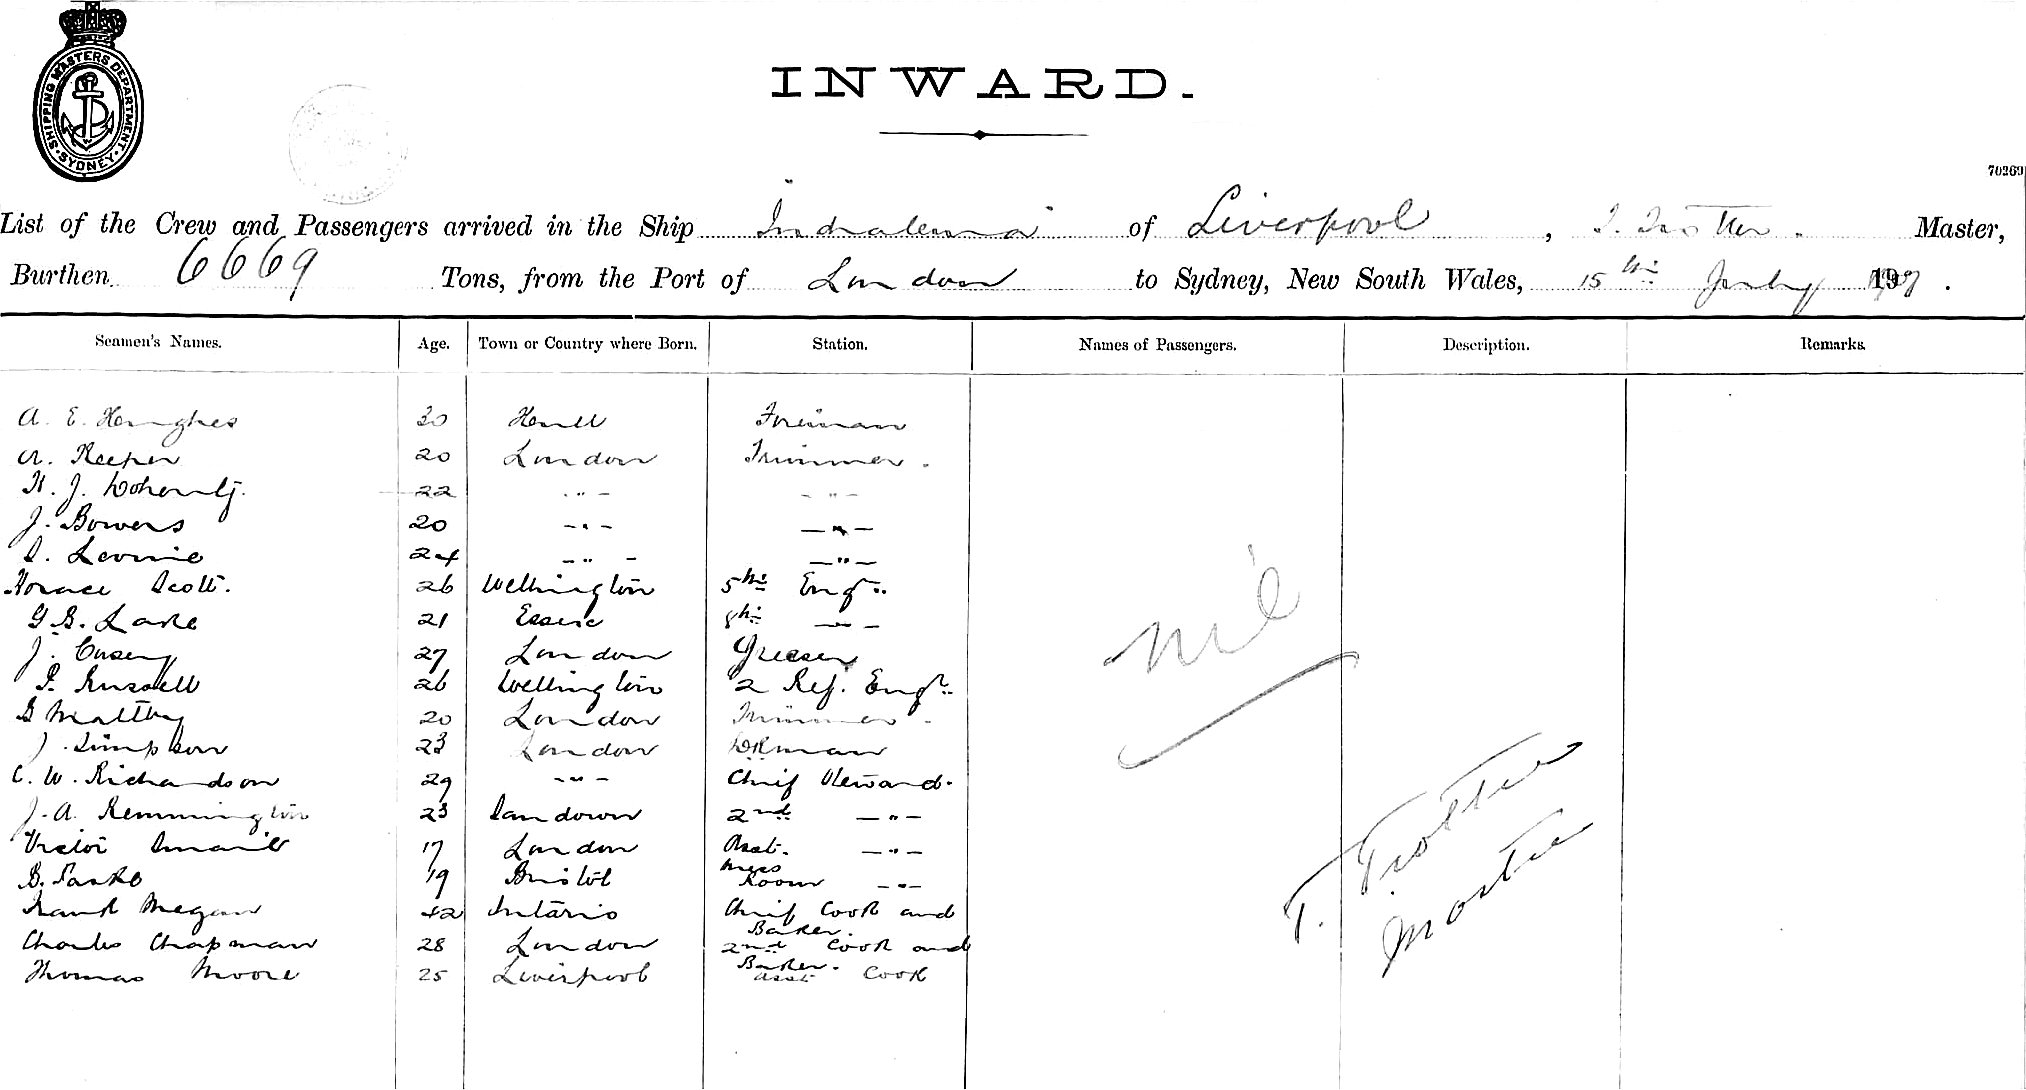 SHIPPING MASTERS DEPARTMENT. SYDNEY.
INWARD.
70269
List of the Crew and Passengers arrived in the Ship Indralema of Liverpool, T. Trotter. Master,
Burthen 6669 Tons, from the Port of London to Sydney, New South Wales, 15th July 19
Seamen's Names. Age. Town or Country where Born. Station. Names of Passengers. Description. Remarks.
A. E. Hughes 30 Hull Fireman
A. Keeper 20 London Trimmer.
H. J. 22 -"- -"-
J. Bowers 20 -"- -"-
24 -"- -"-
Horace Scott. 26 Wellington 5th Engr.
G. Lake 21 Essex 8th -"-
J. Casey 27 London Greaser
P. Russell 26 Wellington 2 Ref. Engr.
Maltby 20 London Trimmer.
J. Simpson 23 London Dkman
C. W. Richardson 29 -"- Chief Steward.
J. A. Remmington 23 Sandown 2nd -"-
Victor 17 London Asst. -"-
B. 19 Bristol Mess Room -"-
Frank Megan 42 Ontario Chief Cook and Baker.
Charles Chapman 28 London 2nd Cook and Baker.
Thomas Moore 25 Liverpool Asst Cook
Nil
T. Trotter
Master